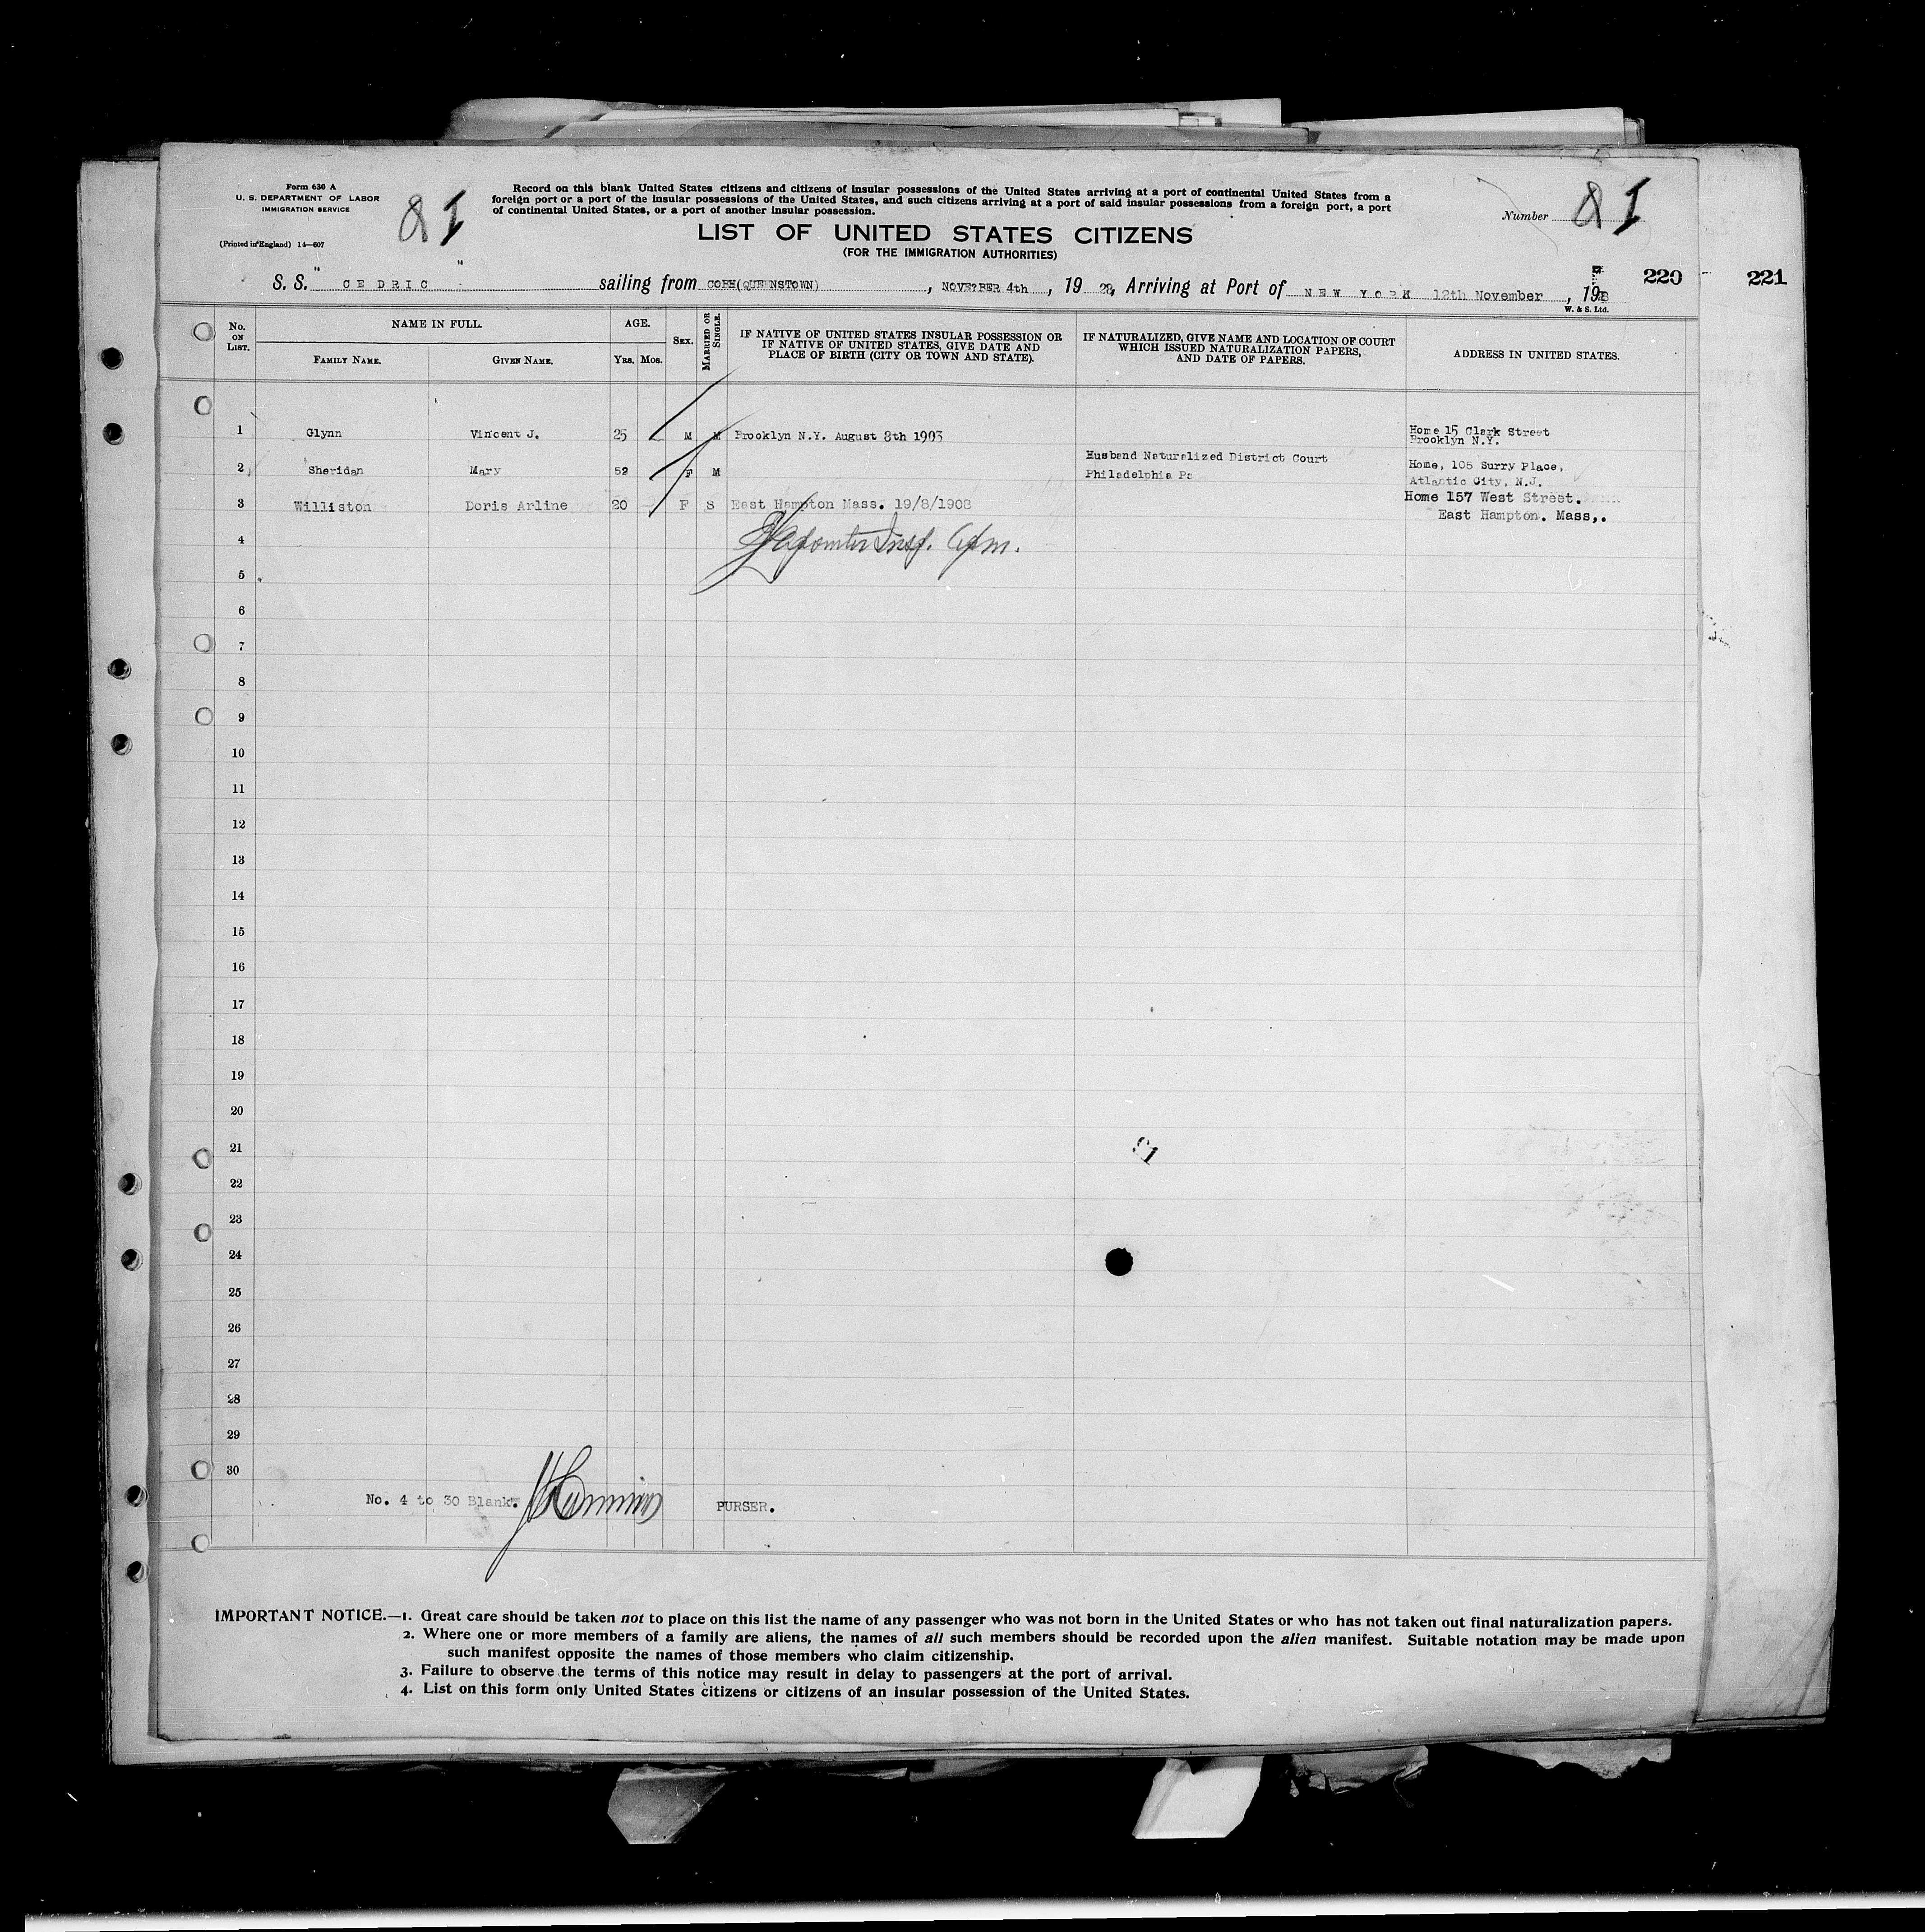 Form 630 A
U. S. DEPARTMENT OF LABOR
IMMIGRATION SERVICE
(Printed in England) 14—607
81
Record on this blank United States citizens and citizens of insular possessions of the United States arriving at a port of continental United States from a
foreign port or a port of the insular possessions of the United States, and such citizens arriving at a port of said insular possessions from a foreign port, a port
of continental United States, or a port of another insular possession.
Number 81
LIST OF UNITED STATES CITIZENS
(FOR THE IMMIGRATION AUTHORITIES)
220 221
S. S. "CEDRIC" sailing from COBH(QUEENSTOWN), NOVE?BER 4th, 19 28, Arriving at Port of NEW YORK 12th November, 1928
W. & S. Ltd.
No. ON LIST. NAME IN FULL. AGE. SEX. MARRIED OR SINGLE. IF NATIVE OF UNITED STATES INSULAR POSSESSION OR IF NATIVE OF UNITED STATES, GIVE DATE AND PLACE OF BIRTH (CITY OR TOWN AND STATE). IF NATURALIZED, GIVE NAME AND LOCATION OF COURT WHICH ISSUED NATURALIZATION PAPERS, AND DATE OF PAPERS. ADDRESS IN UNITED STATES.
FAMILY NAME. GIVEN NAME. Yrs. Mos.
1 Glynn Vincent J. 25 M M Brooklyn N.Y. August 8th 1903 Home 15 Clark Street
Brooklyn N.Y.
2 Sheridan Mary 52 F M Husband Naturalized District Court
Philadelphia Pa Home, 105 Surry Place,
Atlantic City, N.J.
3 Williston Doris Arline 20 F S East Hampton Mass. 19/8/1908 Home 157 West Street.
East Hampton. Mass,.
4 Insp.
5
6
7
8
9
10
11
12
13
14
15
16
17
18
19
20
21
22
23
24
25
26
27
28
29
30
No. 4 to 30 Blank. PURSER.
IMPORTANT NOTICE.—1. Great care should be taken not to place on this list the name of any passenger who was not born in the United States or who has not taken out final naturalization papers.
2. Where one or more members of a family are aliens, the names of all such members should be recorded upon the alien manifest. Suitable notation may be made upon
such manifest opposite the names of those members who claim citizenship.
3. Failure to observe the terms of this notice may result in delay to passengers at the port of arrival.
4. List on this form only United States citizens or citizens of an insular possession of the United States.